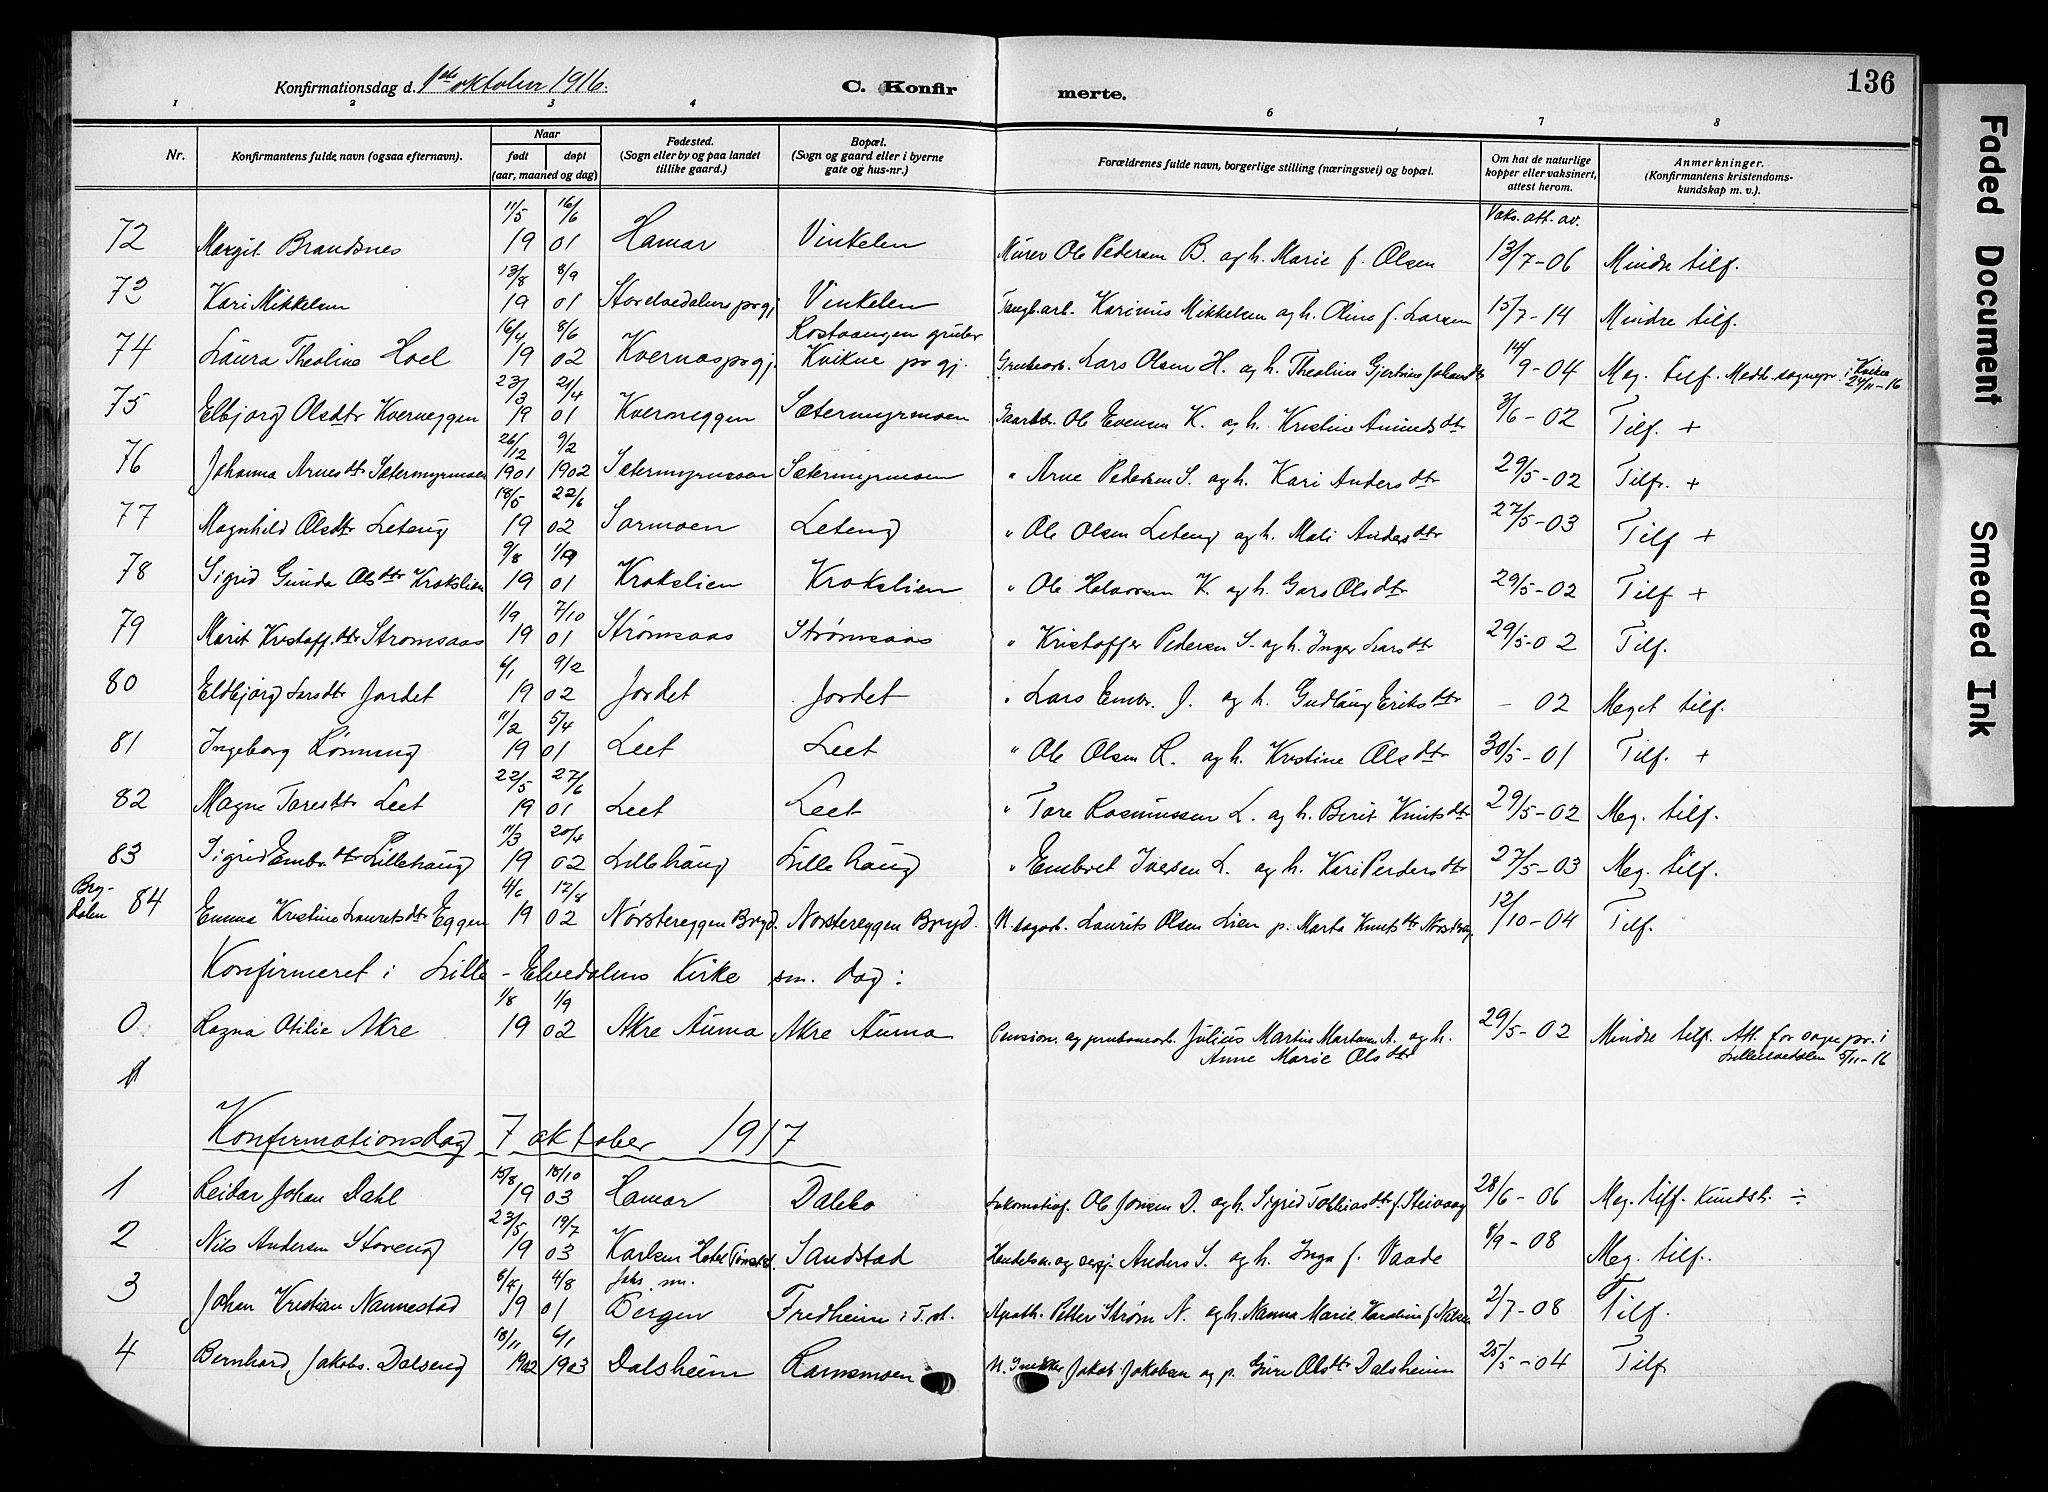 136
Konfirmationsdag d. 1ste oktober 1916.
C. Konfirmerte.
1 2 3 4 5 6 7 8
Nr. Konfirmantens fulde navn (ogsaa efternavn). Naar født døpt (aar, maaned og dag) Fødested. (Sogn eller by og paa landet tillike gaard.) Bopæl. (Sogn og gaard eller i byerne gate og hus-nr.) Forældrenes fulde navn, borgerlige stilling (næringsvei) og bopæl. Om hat de naturlige kopper eller vaksinert, attest herom. Anmerkninger. (Konfirmantens kristendomskundskap m. v.).
Vaks. att. av.
72 Margit Brandsnes 11/5 1901 16/6 Hamar Vinkelen Murer Ole Pedersen B. og h. Marie f. Olsen 13/7-06 Mindre tilf.
73 Kari Mikkelsen 13/8 1901 8/9 Storelvedalens prgj. Vinkelen Karinus Mikkelsen og h. Oline f. Larsen 15/7-14 Mindre tilf.
74 Laura Theoline Hoel 16/4 1902 8/6 Kvernes prgj. Rostvangen gruber Kvikne prgj. Grubearb. Lars Olsen H. og h. Theoline Gjertine Johansdtr 14/9-04 Meg. tilf. Medh. sognepr. i Kvikne 24/11-16
75 Elbjorg Olsdtr Kverneggen 23/3 1901 21/4 Kverneggen Sætermyrmoen Gaardbr. Ole Evensen K. og h. Kristine Amundsdtr 3/6-02 Tilf. +
76 Johanna Arnesdtr Sætermyrmoen 26/12 1901 9/2 1902 Sætermyrmoen Sætermyrmoen " Arne Pedersen S. og h. Kari Andersdtr 29/5-02 Tilf. +
77 Magnhild Olsdtr Leteng 18/5 1902 22/6 Sormoen Leteng " Ole Olsen Leteng og h. Mali Andersdtr 27/5-03 Tilf +
78 Sigrid Gunda Olsdtr Krokslien 9/8 1901 1/9 Krokslien Krokslien " Ole Halvorsen K. og h. Goro Olsdtr 29/5-02 Tilf +
79 Marit Kristoff.dtr Strømsaas 1/9 1901 7/10 Strømsaas Strømsaas " Kristoffer Pedersen S. og h. Inger Larsdtr 29/5-02 Tilf.
80 Eldbjørg Larsdtr Jordet 6/1 1902 9/2 Jordet Jordet " Lars Embr. J. og h. Gudlaug Eriksdtr - 02 Meget tilf.
81 Ingeborg Rønning 11/2 1901 5/4 Leet Leet " Ole Olsen R. og h. Kristine Olsdtr 30/5-01 Tilf. +
82 Magne Toresdtr Leet 22/5 1901 27/6 Leet Leet " Tore Rasmussen L. og h. Berit Knutsdtr 29/5-02 Meg. tilf.
83 Sigrid Embr.dtr Lillehaug 11/3 1902 20/4 Lillehaug Lillehaug " Embret Iversen L. og h. Kari Pedersdtr 27/5-03 Meg. tilf.
Brydalen 84 Emma Kristine Lauritsdtr Eggen 4/6 1902 17/8 Nørstereggen Bryd. Nørstereggen Bryd. U. sagarb. Laurits Olsen Lien p. Marta Knutsdtr 12/10-04 Tilf.
Konfirmeret i Lille-Elvedalens Kirke sm. dag:
0 Ragna Otilie Akre 1/8 1902 1/9 Akre Auma Akre Auma Pension. og jernbanearb. Julius Martin Martinsen A. og h. Anne Marie Olsdtr 29/5-02 Mindre tilf. Att. for sognepr. i Lilleelvedalen 5/11-16
1
Konfirmationsdag 7 oktober 1917
1 Reidar Johan Dahl 15/8 1903 18/10 Hamar Dalebo Lokomotivf. Ole Jonsen D. og h. Sigrid Tobiasdtr f. Steivaag 28/6-06 Meg. tilf. Kundsk. ÷
2 Nils Andersen Storeng 23/5 1903 19/7 Karlsen Hotel Tønset Sandstad Handelsm. og Anders S. og h. Inga f. Vaade 8/9-08 Meg. tilf.
3 Johan Kristian Nannestad 6/4 1901 4/8 Bergen Fredheim i T.st. Apoth. Petter Strøm N. og h. Nanna Marie Karoline f. Nilsen 2/7-08 Tilf.
4 Bernhard Jakobs. Dalseng 18/11 1902 6/1 1903 Dalsheim Ramsmoen U. Snekker Jakob Jakobsen og p. Guri Olsdtr Dalsheim 25/5-04 Tilf
Faded Document
Smeared Ink